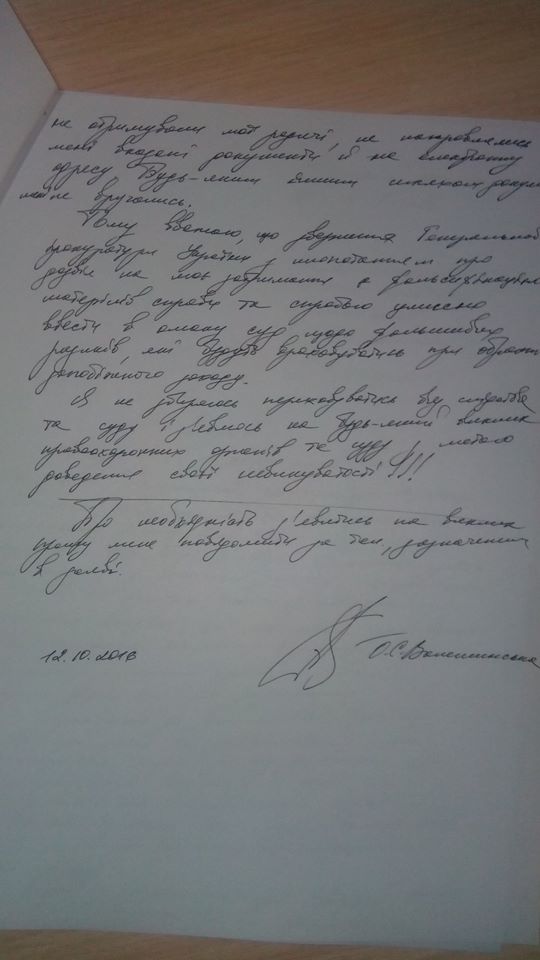 не отримували мої родичі, не направлялись
мені вказані документи й на електронну
адресу. Будь-яким іншим шляхом докум
мені не вручались.
Тому вважаю, що звернення Генеральної
прокуратури України з клопотанням про
дозвіл на моє затримання є фальсифікацією
матеріалів справи та спробою умисно
ввести в оману суд щодо фальшивих
ризиків, які будуть враховуватись при обранні
запобіжного заходу.
Я не збираюсь переховуватись від слідства
та суду і з'явлюсь на будь-який виклик
правоохоронних органів та суду з метою
доведення своєї невинуватості!!!
Про необхідність з'явитись на виклик
прошу мене повідомити за тел, зазначеним
в заяві.
12.10.2016 О.С.